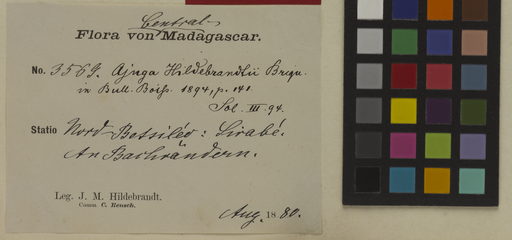 Central-
Flora von Madagascar.
No. 3569. Ajuga Hildebrandtii Briqu.
in Bull. Boiss. 1894, p. 141
Sol. III. 94.
Statio Nord Betsiléo: Sirabé.
An Bachrändern.
Leg. J. M. Hildebrandt.
Comm C. Rensch.
Aug. 1880.